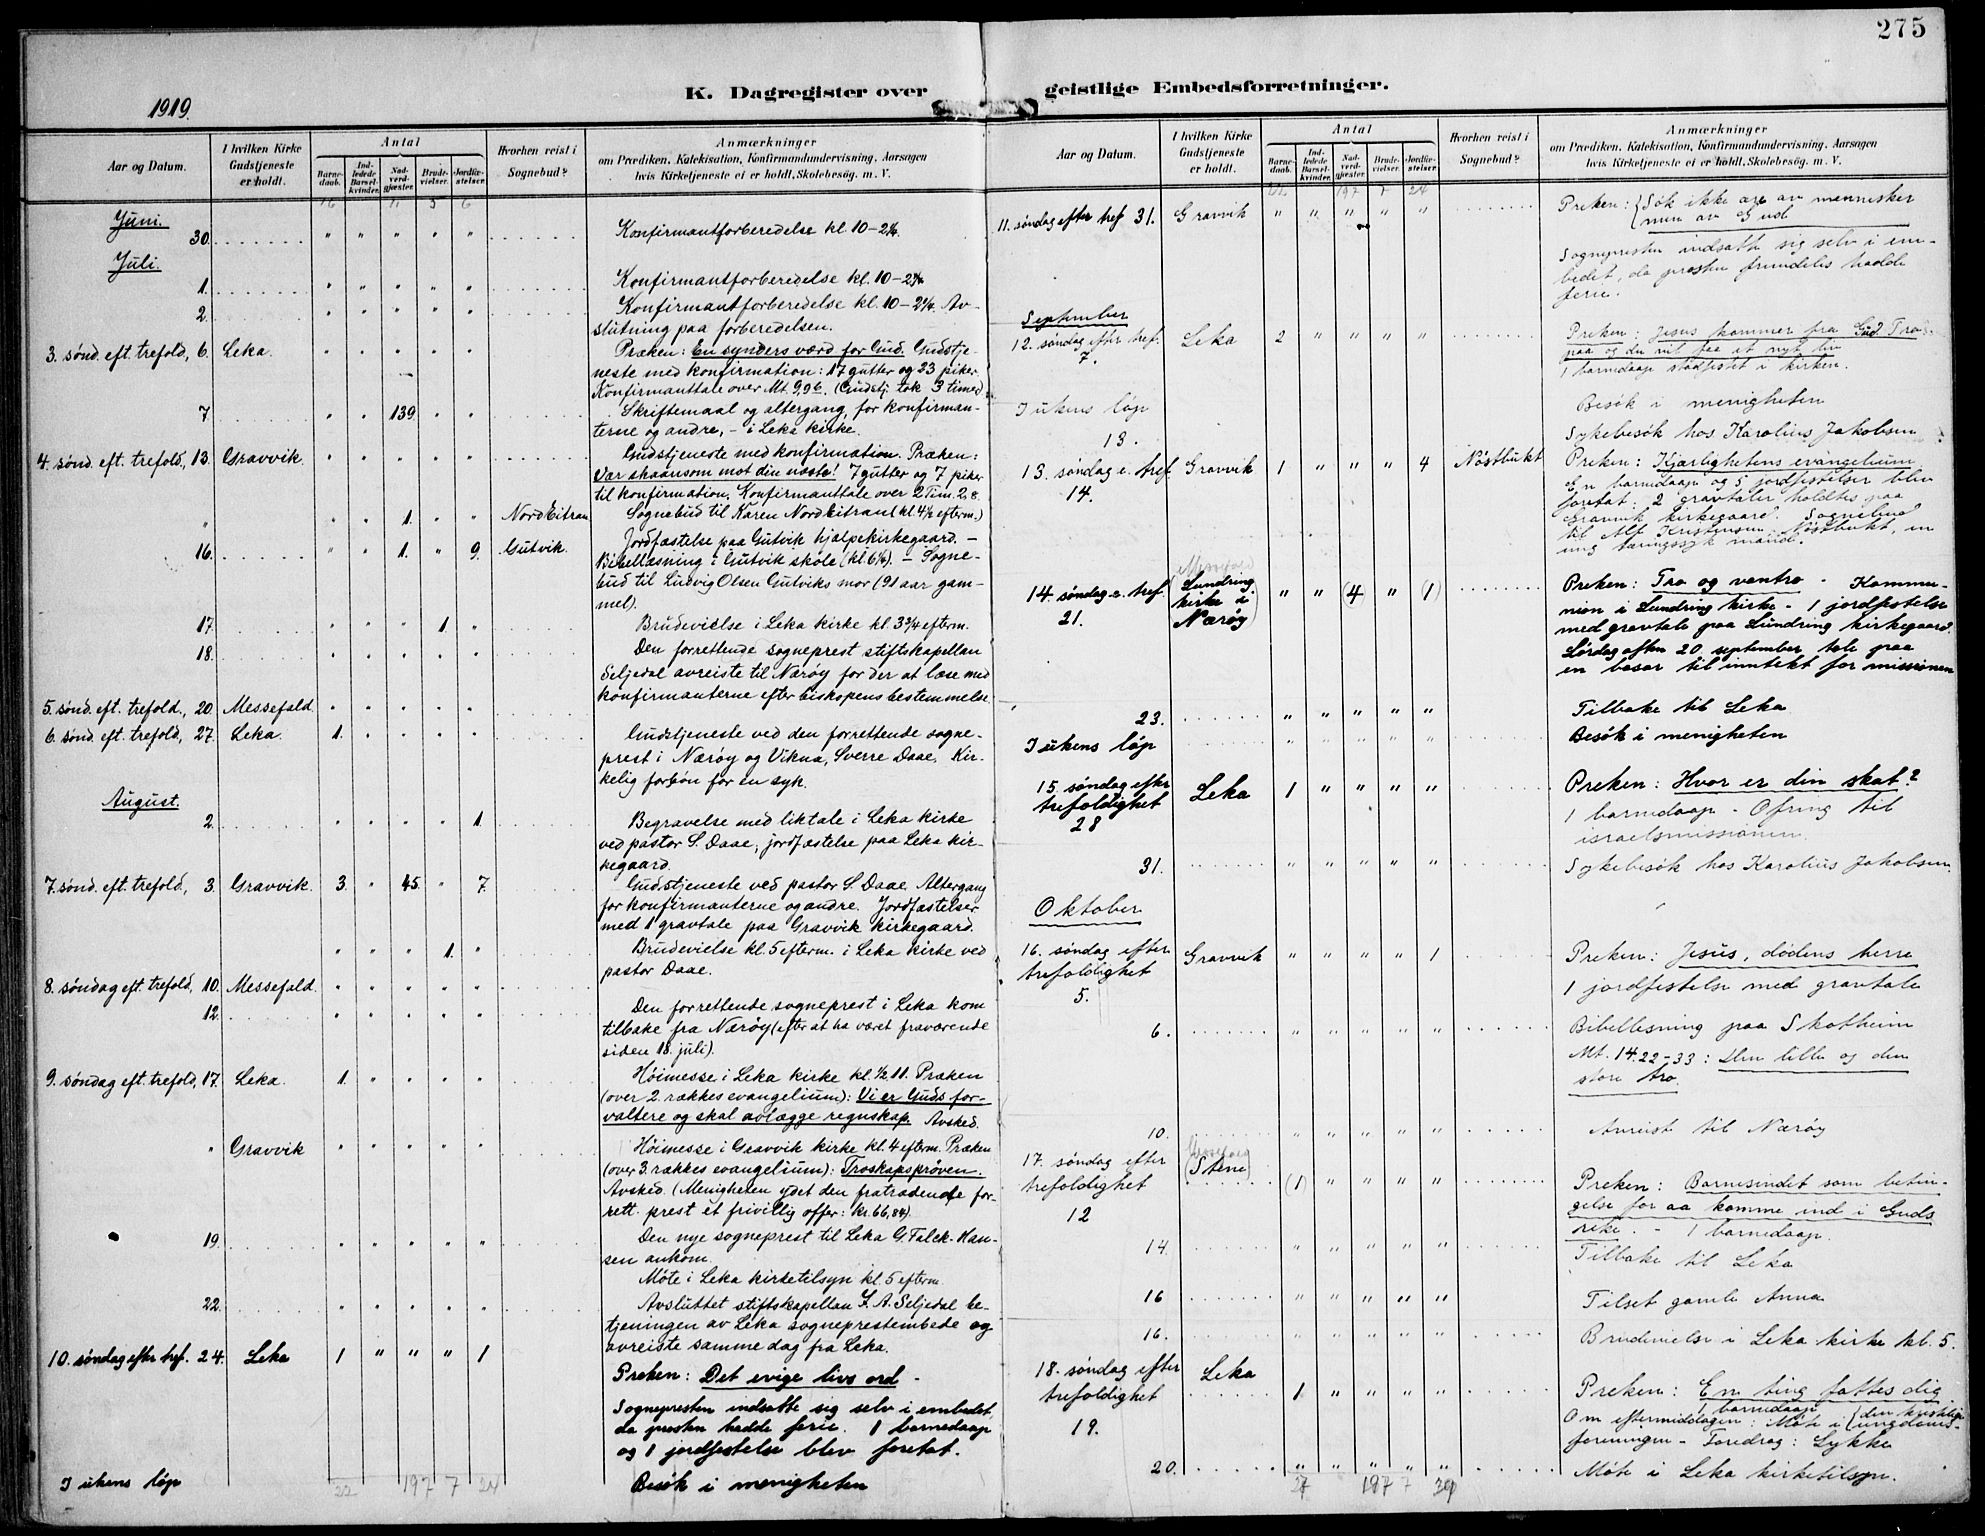 275
K. Dagregister over geistlige Embedsforretninger.
1919.
Aar og Datum.
I hvilken Kirke Gudstjeneste er holdt.
Antal
Barnedaab.
Indledede Barselkvinder.
Nadverdgjæster.
Brudevielser.
Jordfæstelser.
Hvorhen reist i Sognebud?
Anmærkninger
om Prædiken, Katekisation, Konfirmandundervisning, Aarsagen
hvis Kirketjeneste ei er holdt, Skolebesøg. m. V.
Juni.
30. " " " " " Konfirmantforberedelse kl. 10-2¼.
Juli.
1. " " " " " Konfirmantforberedelse kl. 10-2¼.
2. " " " " " Konfirmantforberedelse kl. 10-2¼. Av-
slutning paa forberedelsen.
3. sønd. eft. trefold, 6. Leka. " " " " " Præken: En synders værd for Gud. Gudstje-
neste med konfirmation: 17 gutter og 23 piker.
Konfirmanttale over Mt. 9,9 b. (Gudstj. tok 3 timer).
7 " " 139. " " Skriftemaal og altergang, for konfirman-
terne og andre, - i Leka kirke.
4. sønd. eft. trefold, 13. Gravvik. " " " " " Gudstjeneste med konfirmation. Præken:
Vær skaansom mot din næste! 7 gutter og 7 piker
til konfirmation. Konfirmanttale over 2 Tim. 2,8.
" " " 1. " " Nord Eitran Sognebud til Karen Nord Eitran (kl. 4½ efterm.)
16. " " 1. " 9. Gutvik. Jordfæstelse paa Gutvik hjælpekirkegaard. -
Bibellæsning i Gutvik skole (kl. 6½). - Sogne-
bud til Ludvig Olsen Gutviks mor (91 aar gam-
mel).
17. " " " 1. " Brudevielse i Leka kirke kl. 3¾ efterm.
18. " " " " " Den forrettende sogneprest stiftskapellan
Seljedal avreiste til Nærøy for der at læse med
konfirmanterne efter biskopens bestemmelse.
5. sønd. eft. trefold., 20. Messefald. " " " " "
6. sønd. eft. trefold, 27. Leka. 1. " " " " Gudstjeneste ved den forrettende sogne-
prest i Nærøy og Vikna, Sverre Daae. Kir-
kelig forbøn for en syk.
August.
2. " " " " 1. Begravelse med liktale i Leka kirke
ved pastor S. Daae; jordfæstelse paa Leka kir-
kegaard.
7. sønd. eft. trefold, 3. Gravvik. 3. " 45. " 7. Gudstjeneste ved pastor S. Daae. Altergang
for konfirmanterne og andre. Jordfæstelser
med 1 gravtale paa Gravvik kirkegaard.
" " " 1. " Brudevielse kl. 5 efterm. i Leka kirke ved
pastor Daae.
8. søndag eft. trefold, 10. Messefald. " " " " "
12. " " " " " Den forrettende sogneprest i Leka kom
tilbake fra Nærøy (efter at ha været fraværende
siden 18. juli).
9. søndag eft. trefold, 17. Leka. 1. " " " " Høimesse i Leka kirke kl. ½11. Præken
(over 2. rækkes evangelium): Vi er Guds for-
valtere og skal avlægge regnskap. Avsked.
" Gravvik " " " " " Høimesse i Gravvik kirke kl. 4 efterm. Præken
(over 3. rækkes evangelium): Troskapsprøven.
Avsked. (Menigheten ydet den fratrædende for-
rett. prest et frivillig offer: kr. 66,84).
19. " " " " " Den nye sogneprest til Leka G. Falck-Han-
sen ankom.
Møte i Leka kirketilsyn kl. 5 efterm.
22. " " " " " Avsluttet stiftskapellan J. A. Seljedal be-
tjeningen av Leka sogneprestembede og
avreiste samme dag fra Leka.
10. søndag efter tref. 24. Leka 1 " " " 1 Preken: Det evige livs ord -
Sognepresten indsatte sig selv i embedet,
da prosten hadde ferie. 1 barnedaap
og 1 jordfestelse blev foretat.
I ukens løp Besøk i menigheten
22 197 7 24
Aar og Datum.
I hvilken Kirke Gudstjeneste er holdt.
Antal
Barnedaab.
Indledede Barselkvinder.
Nadverdgjæster.
Brudevielser.
Jordfæstelser.
Hvorhen reist i Sognebud?
Anmærkninger
om Prædiken, Katekisation, Konfirmandundervisning, Aarsagen
hvis Kirketjeneste ei er holdt, Skolebesøg. m. V.
22 197 7 24
11. søndag efter tref 31. Gravvik " " " " " Preken: Søk ikke ære av mennesker
men av Gud
Sognepresten indsatte sig selv i em-
bedet, da prosten fremdeles hadde
ferie.
September
12. søndag efter tref. 7. Leka 2 " " " " Preken: Jesus kommer fra Gud. Tro
paa og du vil faa et nyt liv
1 barnedaap stadfestet i kirken.
I ukens løp Besøk i menigheten
13. Sykebesøk hos Karolius Jakobsen
13. søndag e. tref 14. Gravvik 1 " " " 4 Nøstbukt Preken: Kjærlighetens evangelium
En barnedaap og 5 jordfestelser blev
foretat: 2 gravtaler holdtes paa
Gravvik kirkegaard. Sognebud
til Alf Kristensen Nøstbukt, en
ung tæringssyk mand.
14. søndag e. tref. 21. Messefald (Lundring kirke i Nærøy) " " (4) " (1) Preken: Tro og vantro - Kommu-
nion i Lundring kirke - 1 jordfestelse
med gravtale paa Lundring kirkegaard.
Lørdag aften 20 september tale paa
en basar til inntekt for missionen
23. " " " " " Tilbake til Leka
I ukens løp " " " " " Besøk i menigheten
15. søndag efter trefoldighet 28 Leka 1 " " " " Preken: Hvor er din skat?
1 barnedaap - Ofring til
israelsmissionen.
31. " " " " " Sykebesøk hos Karolius Jakobsen.
Oktober
16. søndag efter trefoldighet 5. Gravvik " " " " 1 Preken: Jesus, dødens herre
1 jordfestelse med gravtale
6. " " " " " Bibellesning paa Skotheim
Mt. 14.22-33: Den lille og den
store tro.
10. " " " " " Avreist til Nærøy
17. søndag efter trefoldighet 12 (Steine) (1) " " " " Preken: Barnesindet som betin-
gelse for aa komme ind i Guds
rike. - 1 barnedaap.
14. " " " " " Tilbake til Leka
16 " " " " " Tilset gamle Anna
16. " " " " " Brudevielse i Leka kirke kl. 5.
18. søndag efter trefoldighet 19. Leka 1 " " " " Preken: En ting fattes dig
1 barnedaap
Om eftermiddagen: Møte i den kristelige ungdoms-
foreningen - Foredrag: Lykke
20. " " " " " Møte i Leka kirketilsyn.
27 197 7 30